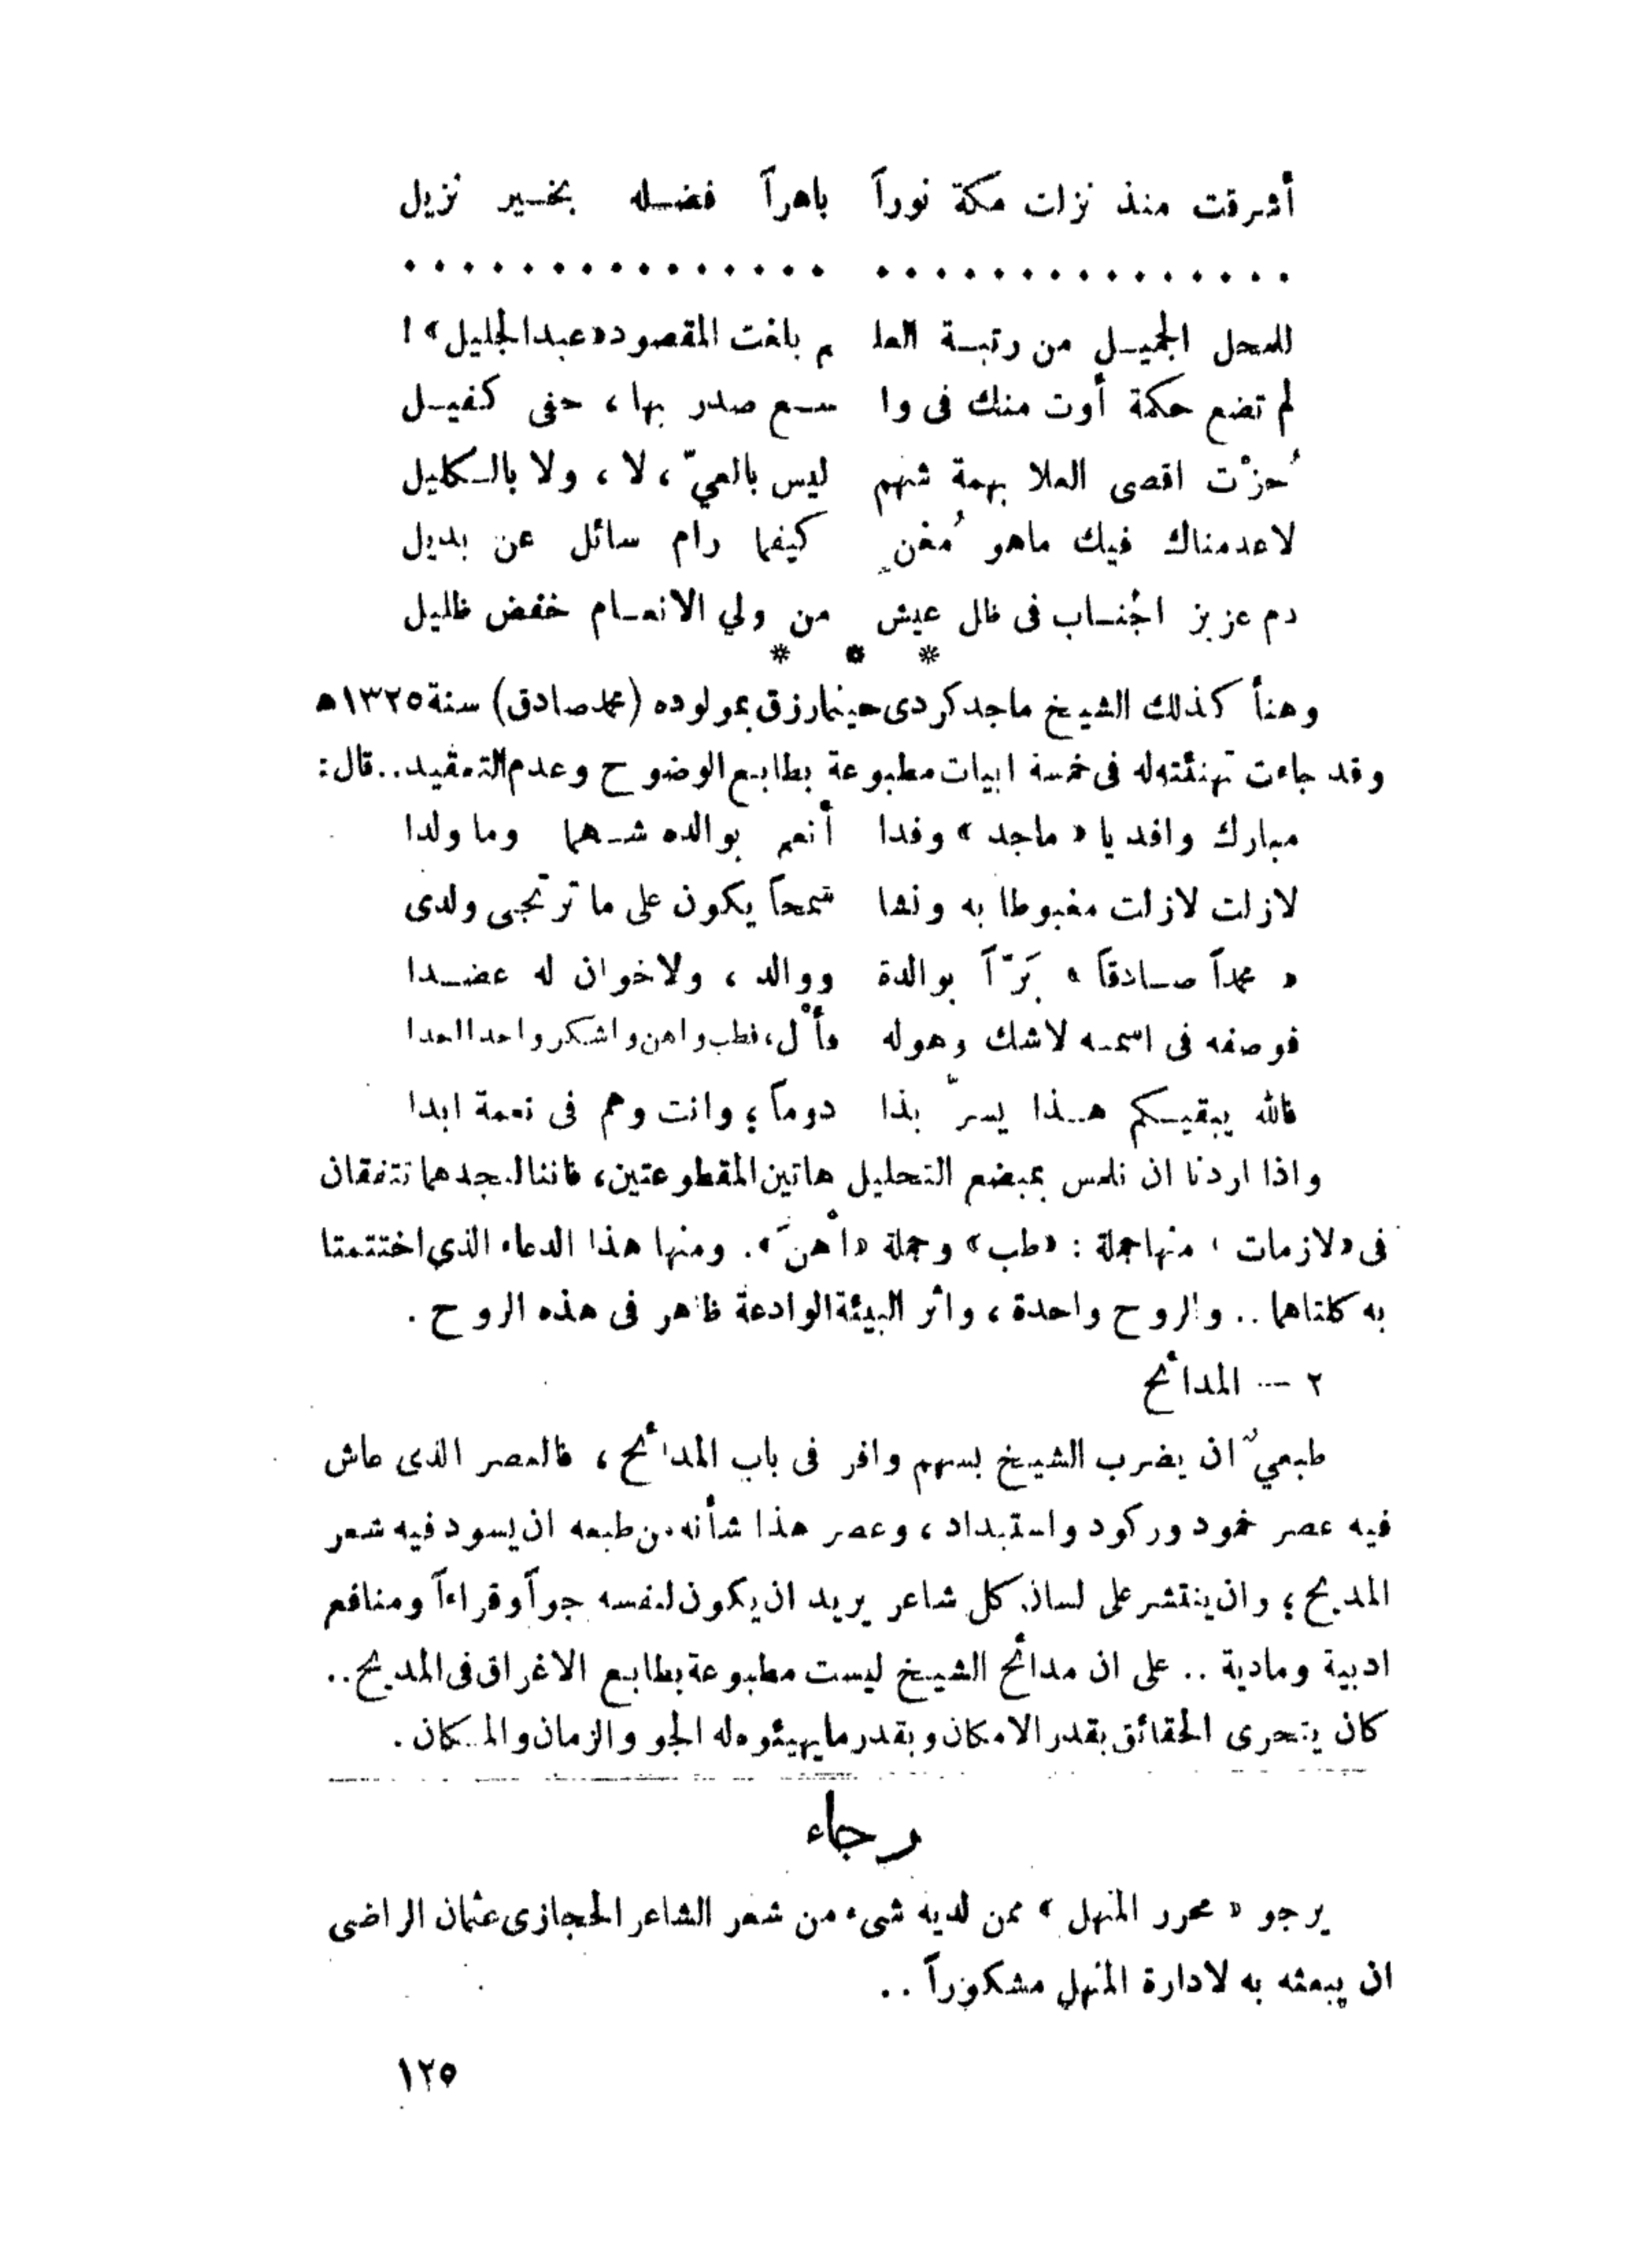 أشرقت منذ نزلت مكة نوراً باهراً فضله بخير نزيل
. . . . . . . . . . . . . . . . . . . . . . . . . . . . . .
للمحل الجميل من رتبة العلـ ـم بلغت المقصود «عبدالجليل» !
لم تضع حكمة أوت منك فى وا سع صدر بها، حفى كفيل
حُزْت اقصى العلا بهمة شهم ليس بالعيّ، لا، ولا بالكليل
لاعدمناك فيك ماهو مُغنٍ كيفما رام سائل عن بديل
دم عزيز الجناب فى ظل عيش من ولي الانعام خفض ظليل
* * *
وهنأ كذلك الشيخ ماجد كردى حينما رزق بمولوده (محمد صادق) سنة ١٣٢٥ه
وقد جاءت تهنئته له فى خمسة ابيات مطبوعة بطابع الوضوح وعدم التعقيد.. قال:
مبارك وافد يا «ماجد» وفدا أنعم بوالده شهما وما ولدا
لازلت لازلت مغبوطا به ونشا سمحاً يكون على ما ترتجى ولدى
«محمداً صادقاً» بَرّاً بوالدة ووالد، ولاخوان له عضدا
فوصفه فى اسمه لاشك وهوله فألْ، فطب واهن واشكر واحدا احدا
فالله يبقيكم هذا يسرّ بذا دوماً؛ وانت وهم فى نعمة ابدا
واذا اردنا ان نلمس بمبضع التحليل هاتين المقطوعتين، فاننا لنجدهما تتفقان
فى «لازمات» منها جملة : «طب» وجملة «اهْنَ». ومنها هذا الدعاء الذي اختتمتا
به كلتاهما .. والروح واحدة، واثر البيئة الوادعة ظاهر فى هذه الروح .
٢ — المدائح
طبعيٌ ان يضرب الشيخ بسهم وافر فى باب المدائح، فالعصر الذى عاش
فيه عصر خمود وركود واستبداد، وعصر هذا شأنه من طبعه ان يسود فيه شعر
المديح؛ وان ينتشر على لسان كل شاعر يريد ان يكون لنفسه جواً وقراءاً ومنافع
ادبية ومادية .. على ان مدائح الشيخ ليست مطبوعة بطابع الاغراق فى المديح..
كان يتحرى الحقائق بقدر الامكان وبقدر مايهيئوه له الجو والزمان والمكان .
رجاء
يرجو «محرر المنهل» ممن لديه شىء من شعر الشاعر الحجازى عثمان الراضى
ان يبعثه به لادارة المنهل مشكوراً ..
١٢٥